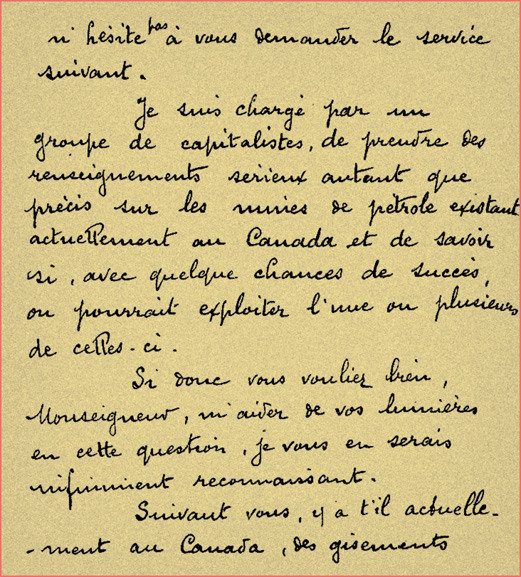 n'hésite pas à vous demander le service
suivant.
Je suis chargé par un
groupe de capitalistes, de prendre des
renseignements serieux autant que
précis sur les mines de pétrole existant
actuellement au Canada et de savoir
si, avec quelque chances de succès,
on pourrait exploiter l'une ou plusieurs
de celles-ci.
Si donc vous vouliez bien,
Monseigneur, m'aider de vos lumières
en cette question, je vous en serais
infiniment reconnaissant.
Suivant vous, y a t'il actuelle-
-ment au Canada, des gisements